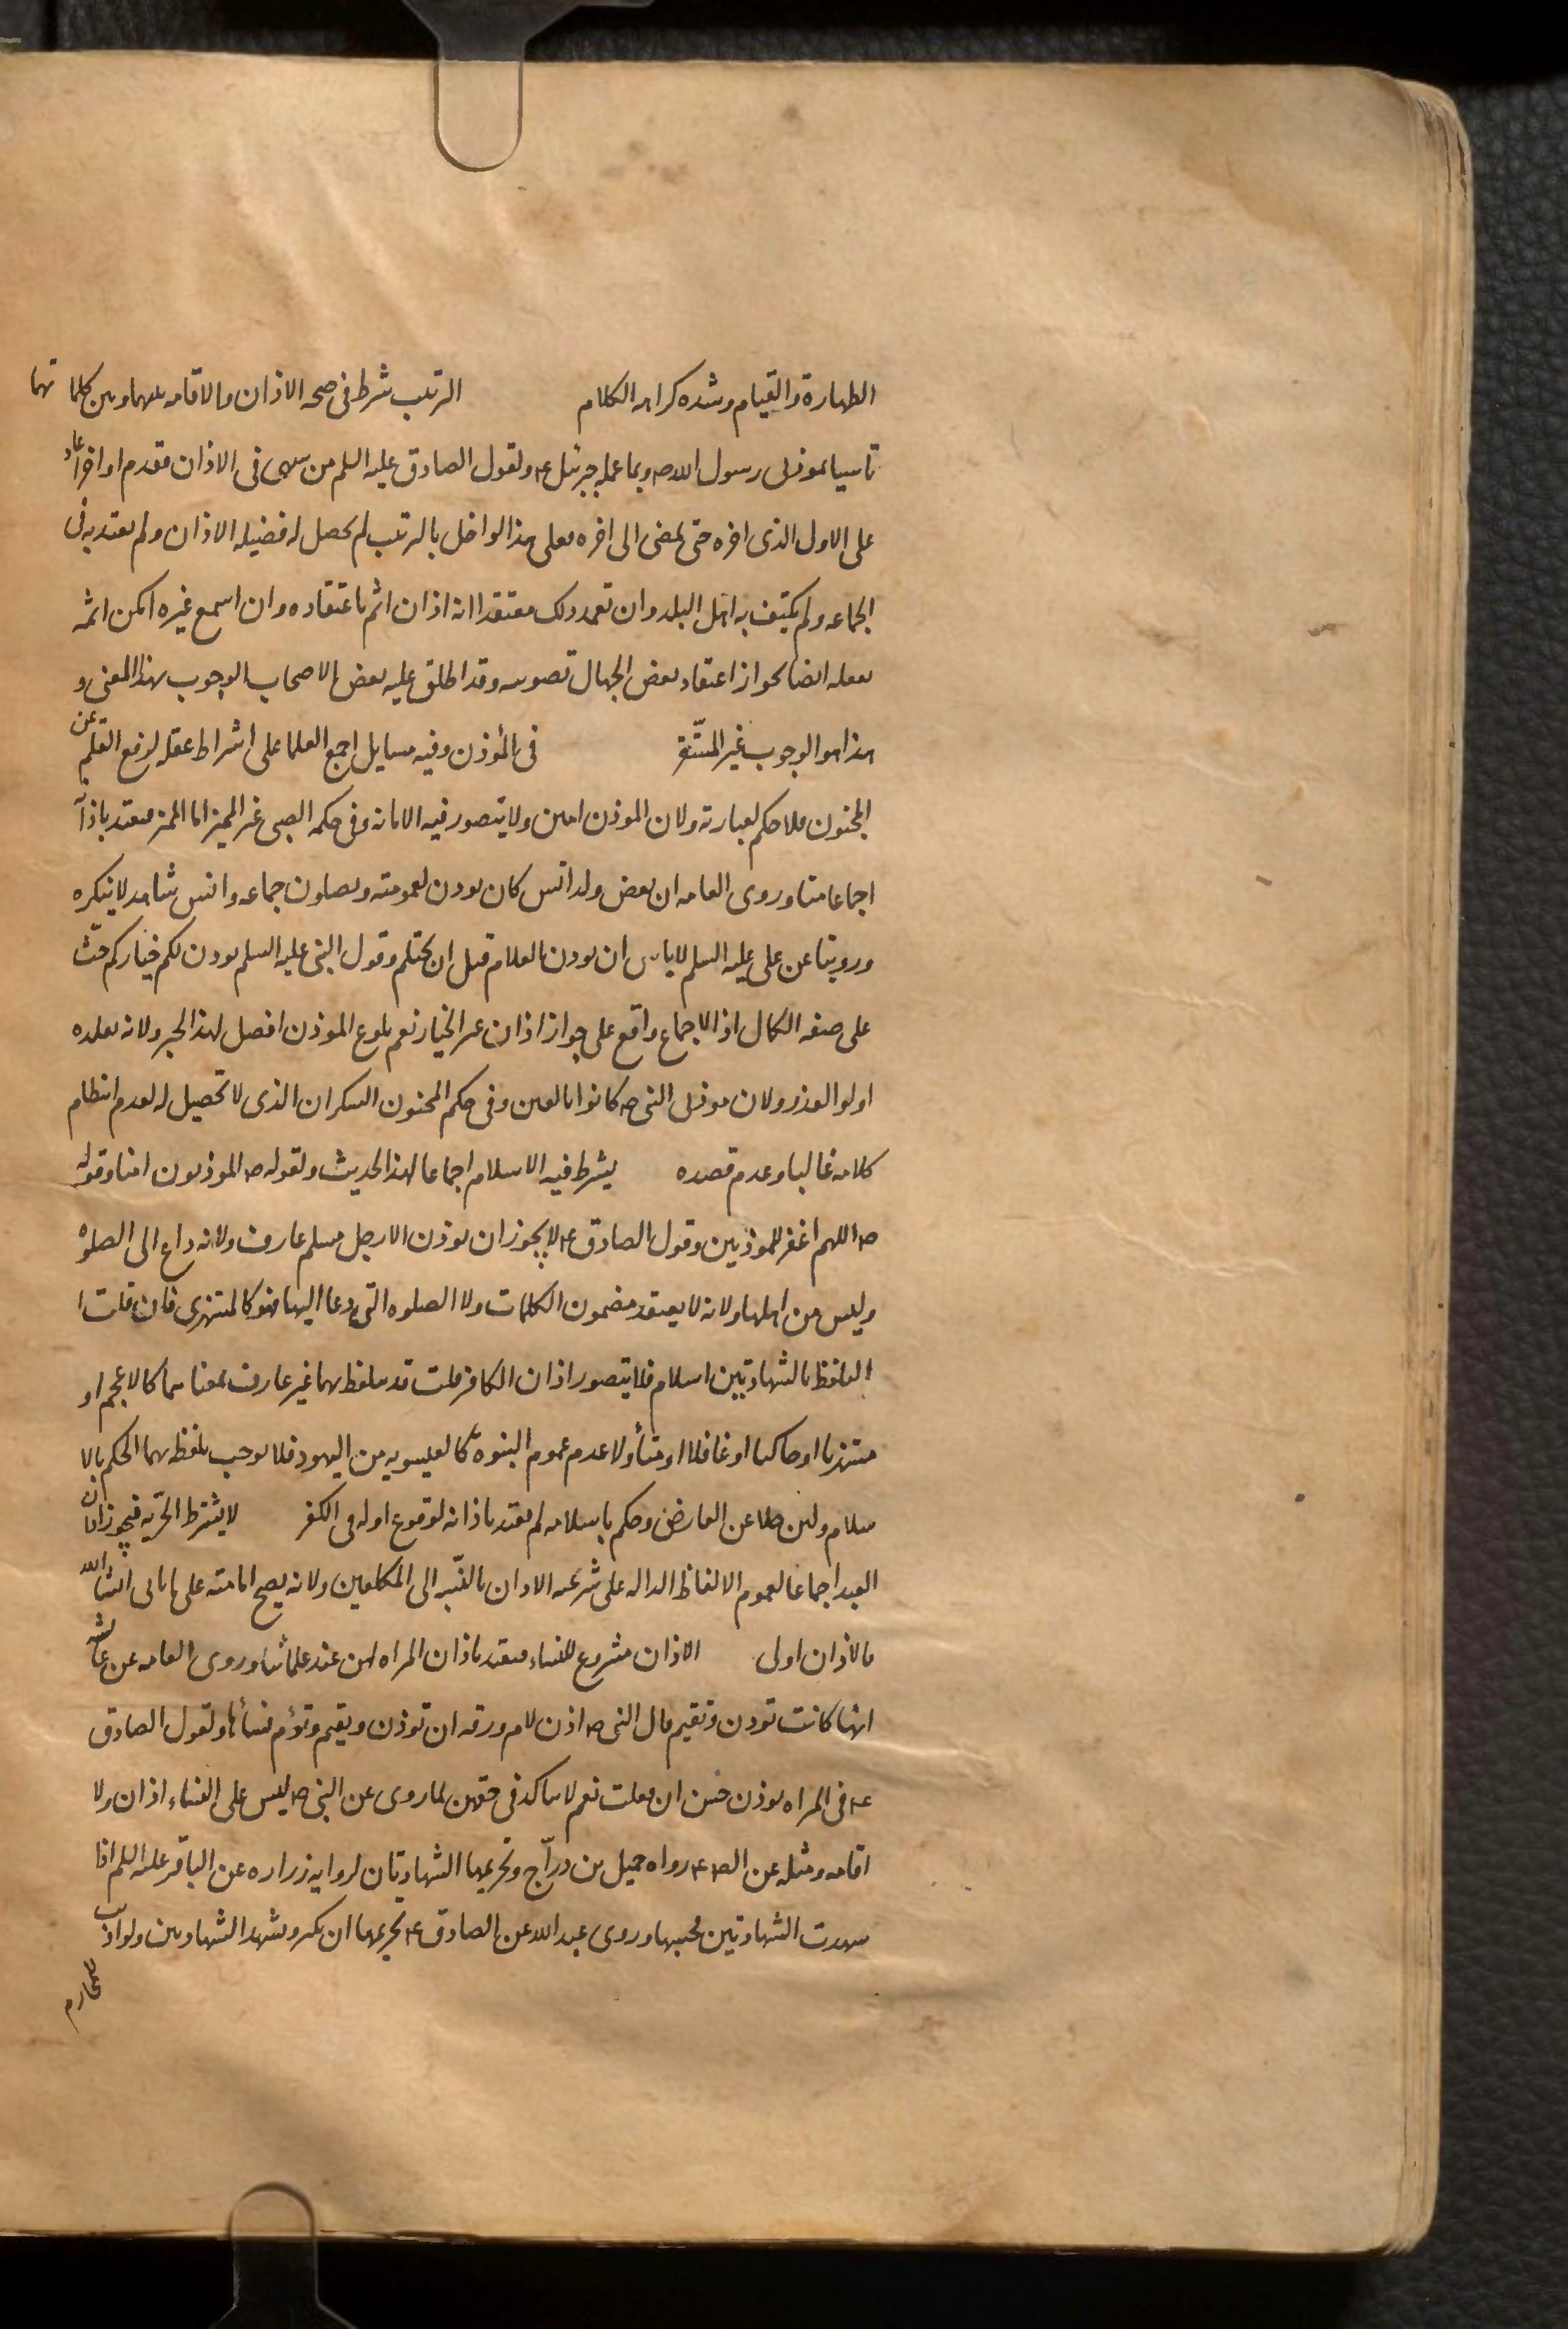 الطهارة والقيام وشده كراهه الكلام الترتيب شرط فى صحه الاذان والاقامه بينهما وبين كلما تهما
تاسيا بموذنى رسول الله ص وبما علمه جبرئيل ع ولقول الصادق عليه السلم من سهى فى الاذان فقدم او اخر اعاد
على الاول الذى اخره حتى يمضى الى اخره فعلى هذا لو اخل بالترتيب لم يحصل له فضيله الاذان ولم يعتد به فى
الجماعه ولم يكتف به اهل البلد وان تعمد ذلك معتقدا انه اذان اثم باعتقاده وان اسمع غيره امكن اثمه
بفعله ايضا لجواز اعتقاد بعض الجهال تصويبه وقد اطلق عليه بعض الاصحاب الوجوب بهذا المعنى و
هذا هو الوجوب غير المستقر فى المؤذن وفيه مسايل اجمع العلما على اشتراط عقله لرفع القلم عن
المجنون فلا حكم لعبارته ولان الموذن امين ولا يتصور فيه الامانه وفى حكمه الصبى غير المميز اما المميز فيعتد باذا
اجماعا منا وروى العامه ان بعض ولد انس كان يوذن لعمومته ويصلون جماعه وانس شاهد لا ينكره
وروينا عن على عليه السلم لا باس ان يوذن الغلام قبل ان يحتلم وقول النبى عليه السلم يوذن لكم خياركم حث
على صفه الكمال اذ الاجماع واقع على جواز اذان غير الخيار نعم بلوغ الموذن افضل لهذا الخبر ولانه يقلده
اولو العذر ولان موذنى النبى ص كانوا بالغين وفى حكم المجنون السكران الذى لا تحصيل له لعدم انتظام
كلامه غالبا وعدم قصده يشترط فيه الاسلام اجماعا لهذا الحديث ولقوله ص الموذنون امنا وقوله
ص اللهم اغفر للموذنين وقول الصادق ع لا يجوز ان يوذن الا رجل مسلم عارف ولانه داع الى الصلوة
وليس من اهلها ولانه لا يعتقد مضمون الكلمات ولا الصلوه التى دعا اليها فهو كالمستهزى فان قلت ا
التلفظ بالشهادتين اسلام فلا يتصور اذان الكافر قلت قد يتلفظ بهما غير عارف بمعناهما كالاعجم او
مستهزيا او حاكيا او غافلا او متأولا عدم عموم النبوة كالعيسويه من اليهود فلا يوجب تلفظه بهما الحكم بالا
سلام ولئن خلا عن العارض وحكم باسلامه لم يعتد باذانه لوقوع اوله فى الكفر لا يشترط الحريه فيجوز اذان
العبد اجماعا لعموم الالفاظ الداله على شرعيه الاذان بالنسبه الى المكلفين ولانه يصح امامته على ما ياتى انشا الله
فالاذان اولى الاذان مشروع للنساء فيعتد باذان المراه لهن عند علمائنا وروى العامه عن عائشه
انها كانت توذن وتقيم قال النبى ص اذن لام ورقه ان توذن ويقيم وتؤم نسأها ولقول الصادق
ع فى المراه يوذن حسن ان فعلت نعم لا يتاكد فى حقهن لما روى عن النبى ص ليس على النساء اذان ولا
اقامه ومثله عن الص ع رواه جميل بن درّاج وتجزيها الشهادتان لروايه زراره عن الباقر عليه السلم اذا
شهدت الشهادتين فحسبها وروى عبد الله عن الصادق ع تجزيها ان يكبر ويشهد الشهادتين ولو اذنت
للمحارم